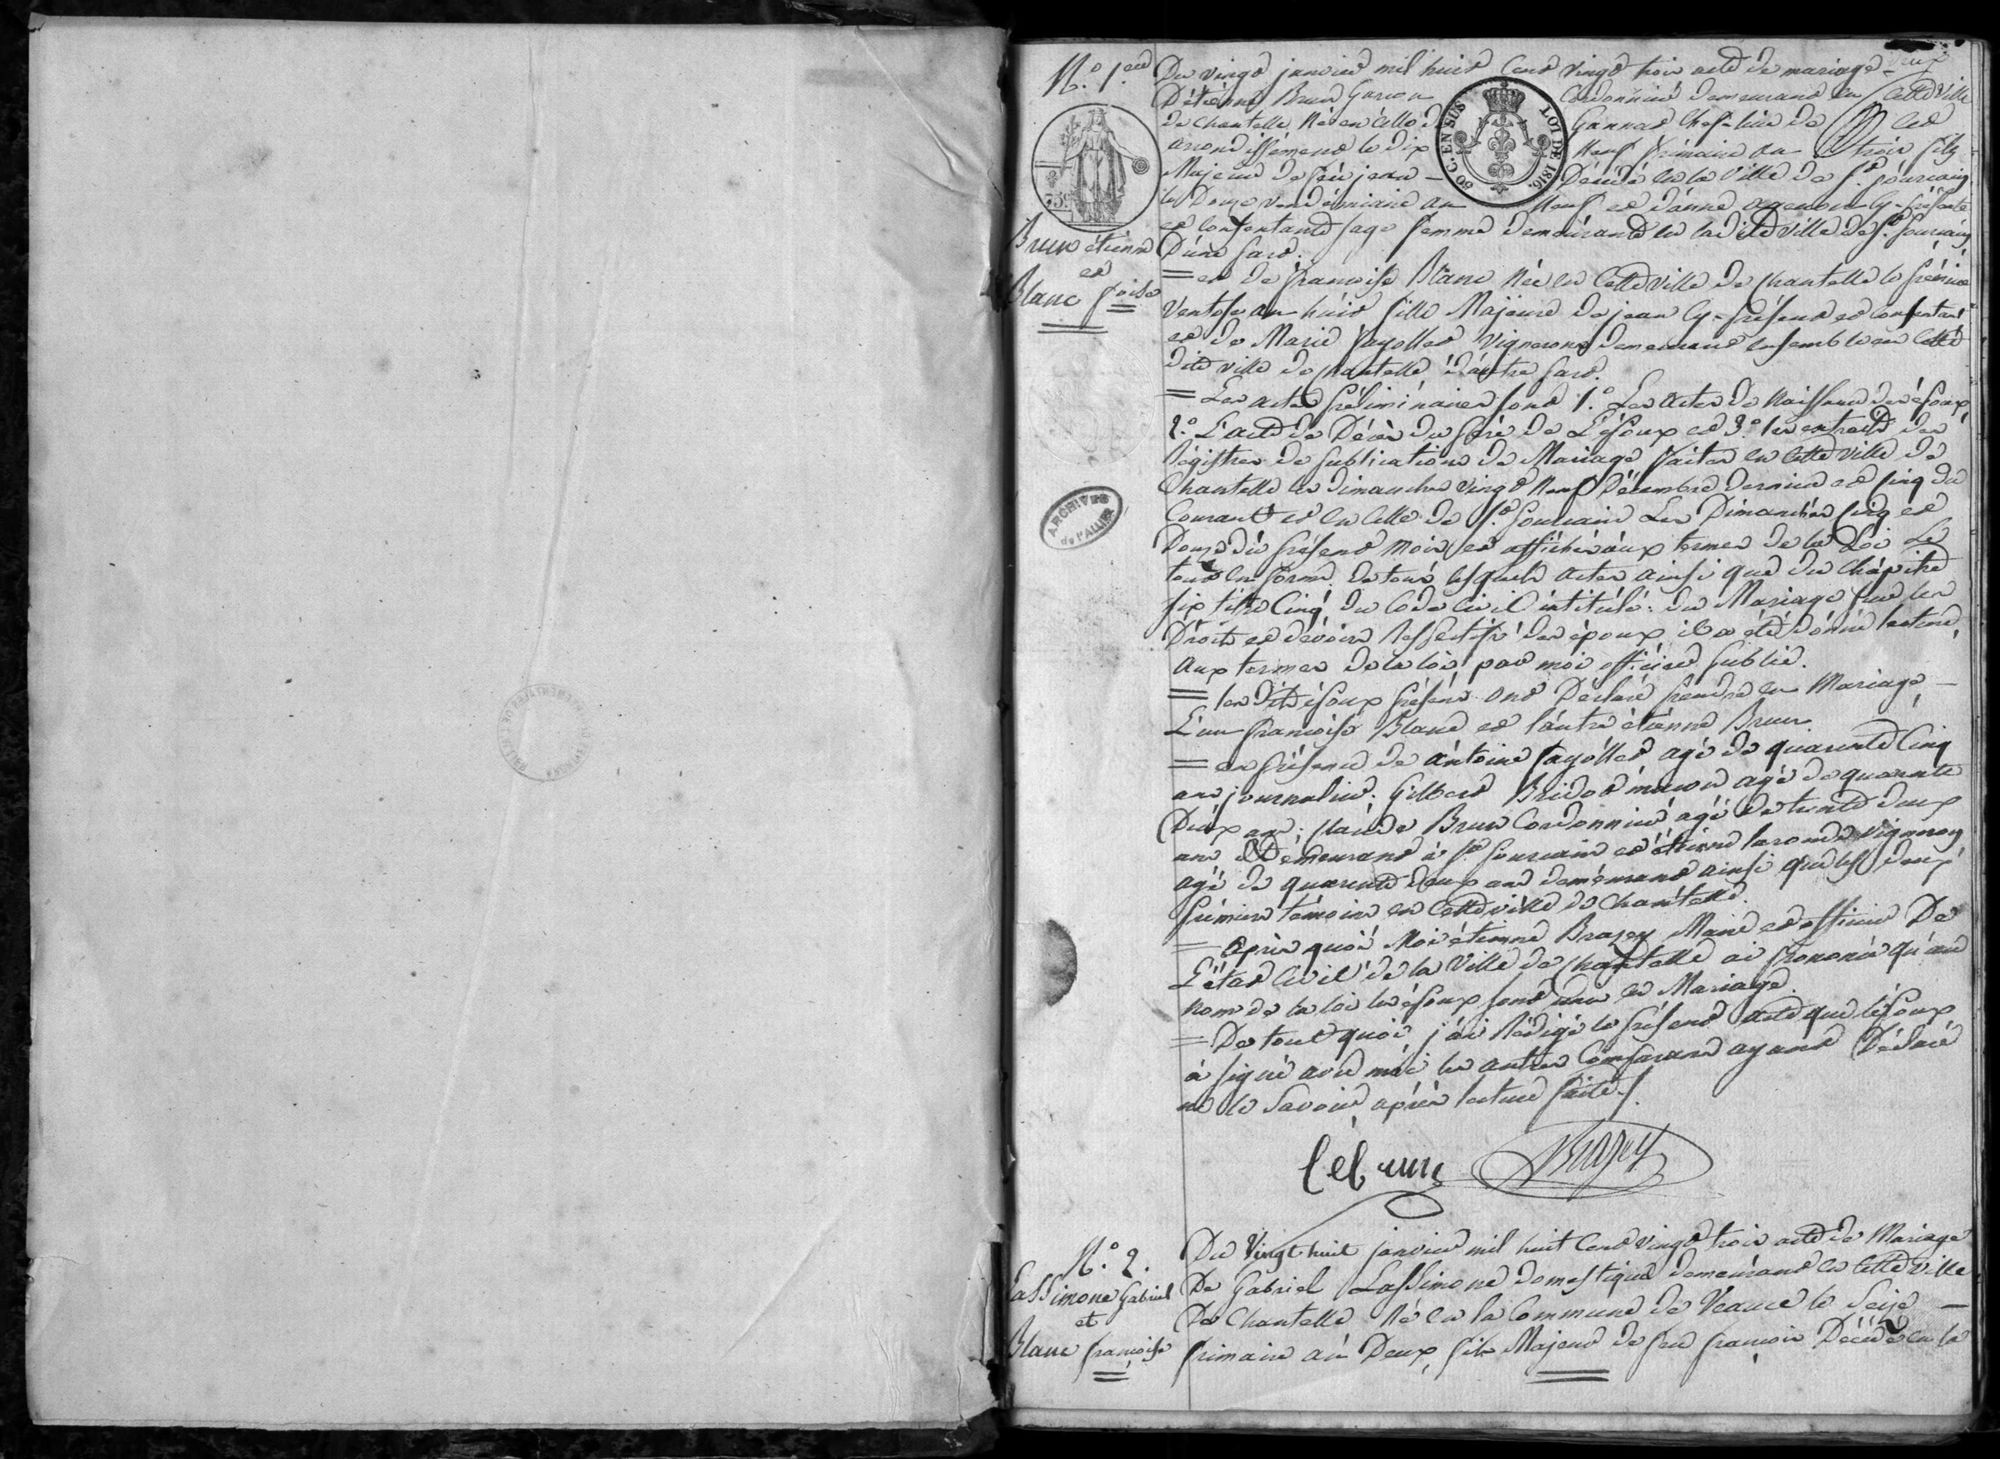 N.° 1.er
Brun étienne
et
Blanc f.oise
75c
50 C. EN SUS
LOI DE 1816.
ARCHIVES
de l'ALLIER
Du vingt janvier mil huit Cent vingt trois acte de mariage
D'étienne Brun Garçon Cordonnier demeurant en Cette Ville
de Chantelle Né en Celle de Gannat Chef-lieu de Cet
arrondissement le dix Neuf frimaire an trois fils
Majeur de feu jean Décédé en la Ville de St. Pourçain
le Douze vendémiaire an Neuf et d'anne Cy-présente
et Consentante sage femme demeurante en la dite Ville de St. Pourçain
D'une part.
= et de françoise Blanc Née en Cette Ville de Chantelle le premier
Ventose an huit fille Majeure de jean Cy-présent et Consentant
et de Marie fayolles Vignerons demeurant ensemble en Cette
dite Ville de Chantelle d'autre part.
= Les actes préliminaires sont 1.° Les actes de Naissance des époux
2.° L'acte de Décès du père de L'époux et 3.° les extraits des
Régistres de publications de Mariage faites en Cette Ville de
Chantelle les dimanches vingt Neuf Décembre dernier et Cinq du
Courant et en Celle de St. Pourçain Les Dimanches Cinq et
Douze du présent Mois et affichés aux termes de la Loi Le
tout en forme. de tous lesquels actes ainsi que du Chapitre
six titre Cinq du Code Civil intitulé: du Mariage sur les
Droits et devoirs respectifs des époux, il a été donné lecture
aux termes de la loi par moi officier public.
= les dits époux présens ont Déclaré prendre en Mariage
L'un françoise Blanc et l'autre étienne Brun
= en présence de antoine fayolles agé de quarante Cinq
ans journalier. Gilbert Bridot maçon agé de quarante
Deux ans; Claude Brun Cordonnier agé de trente deux
ans Demeurant à St. Pourçain et étienne laronde Vigneron
agé de quarante deux ans demeurant ainsi que les deux
premiers témoins en Cette ville de Chantelle.
= après quoi Moi étienne Brazey Maire et officier De
L'état Civil de la Ville de Chantelle ai prononcé qu'au
Nom de la loi les époux sont unis en Mariage.
= De tout quoi j'ai Rédigé le présent acte que l'époux
à signé avec moi les autres Comparans ayant Déclaré
ne le Savoir après lecture faite.
Lebrun Brazey
N.° 2.
Lassimone Gabriel
et
Blanc françoise
Du Vingt huit janvier mil huit Cent vingt trois acte de Mariage
De Gabriel Lassimone domestique demeurant en Cette Ville
De Chantelle Né en la Commune de Veauce le Seize
frimaire an Deux, fils Majeur de feu françois Décédé en la